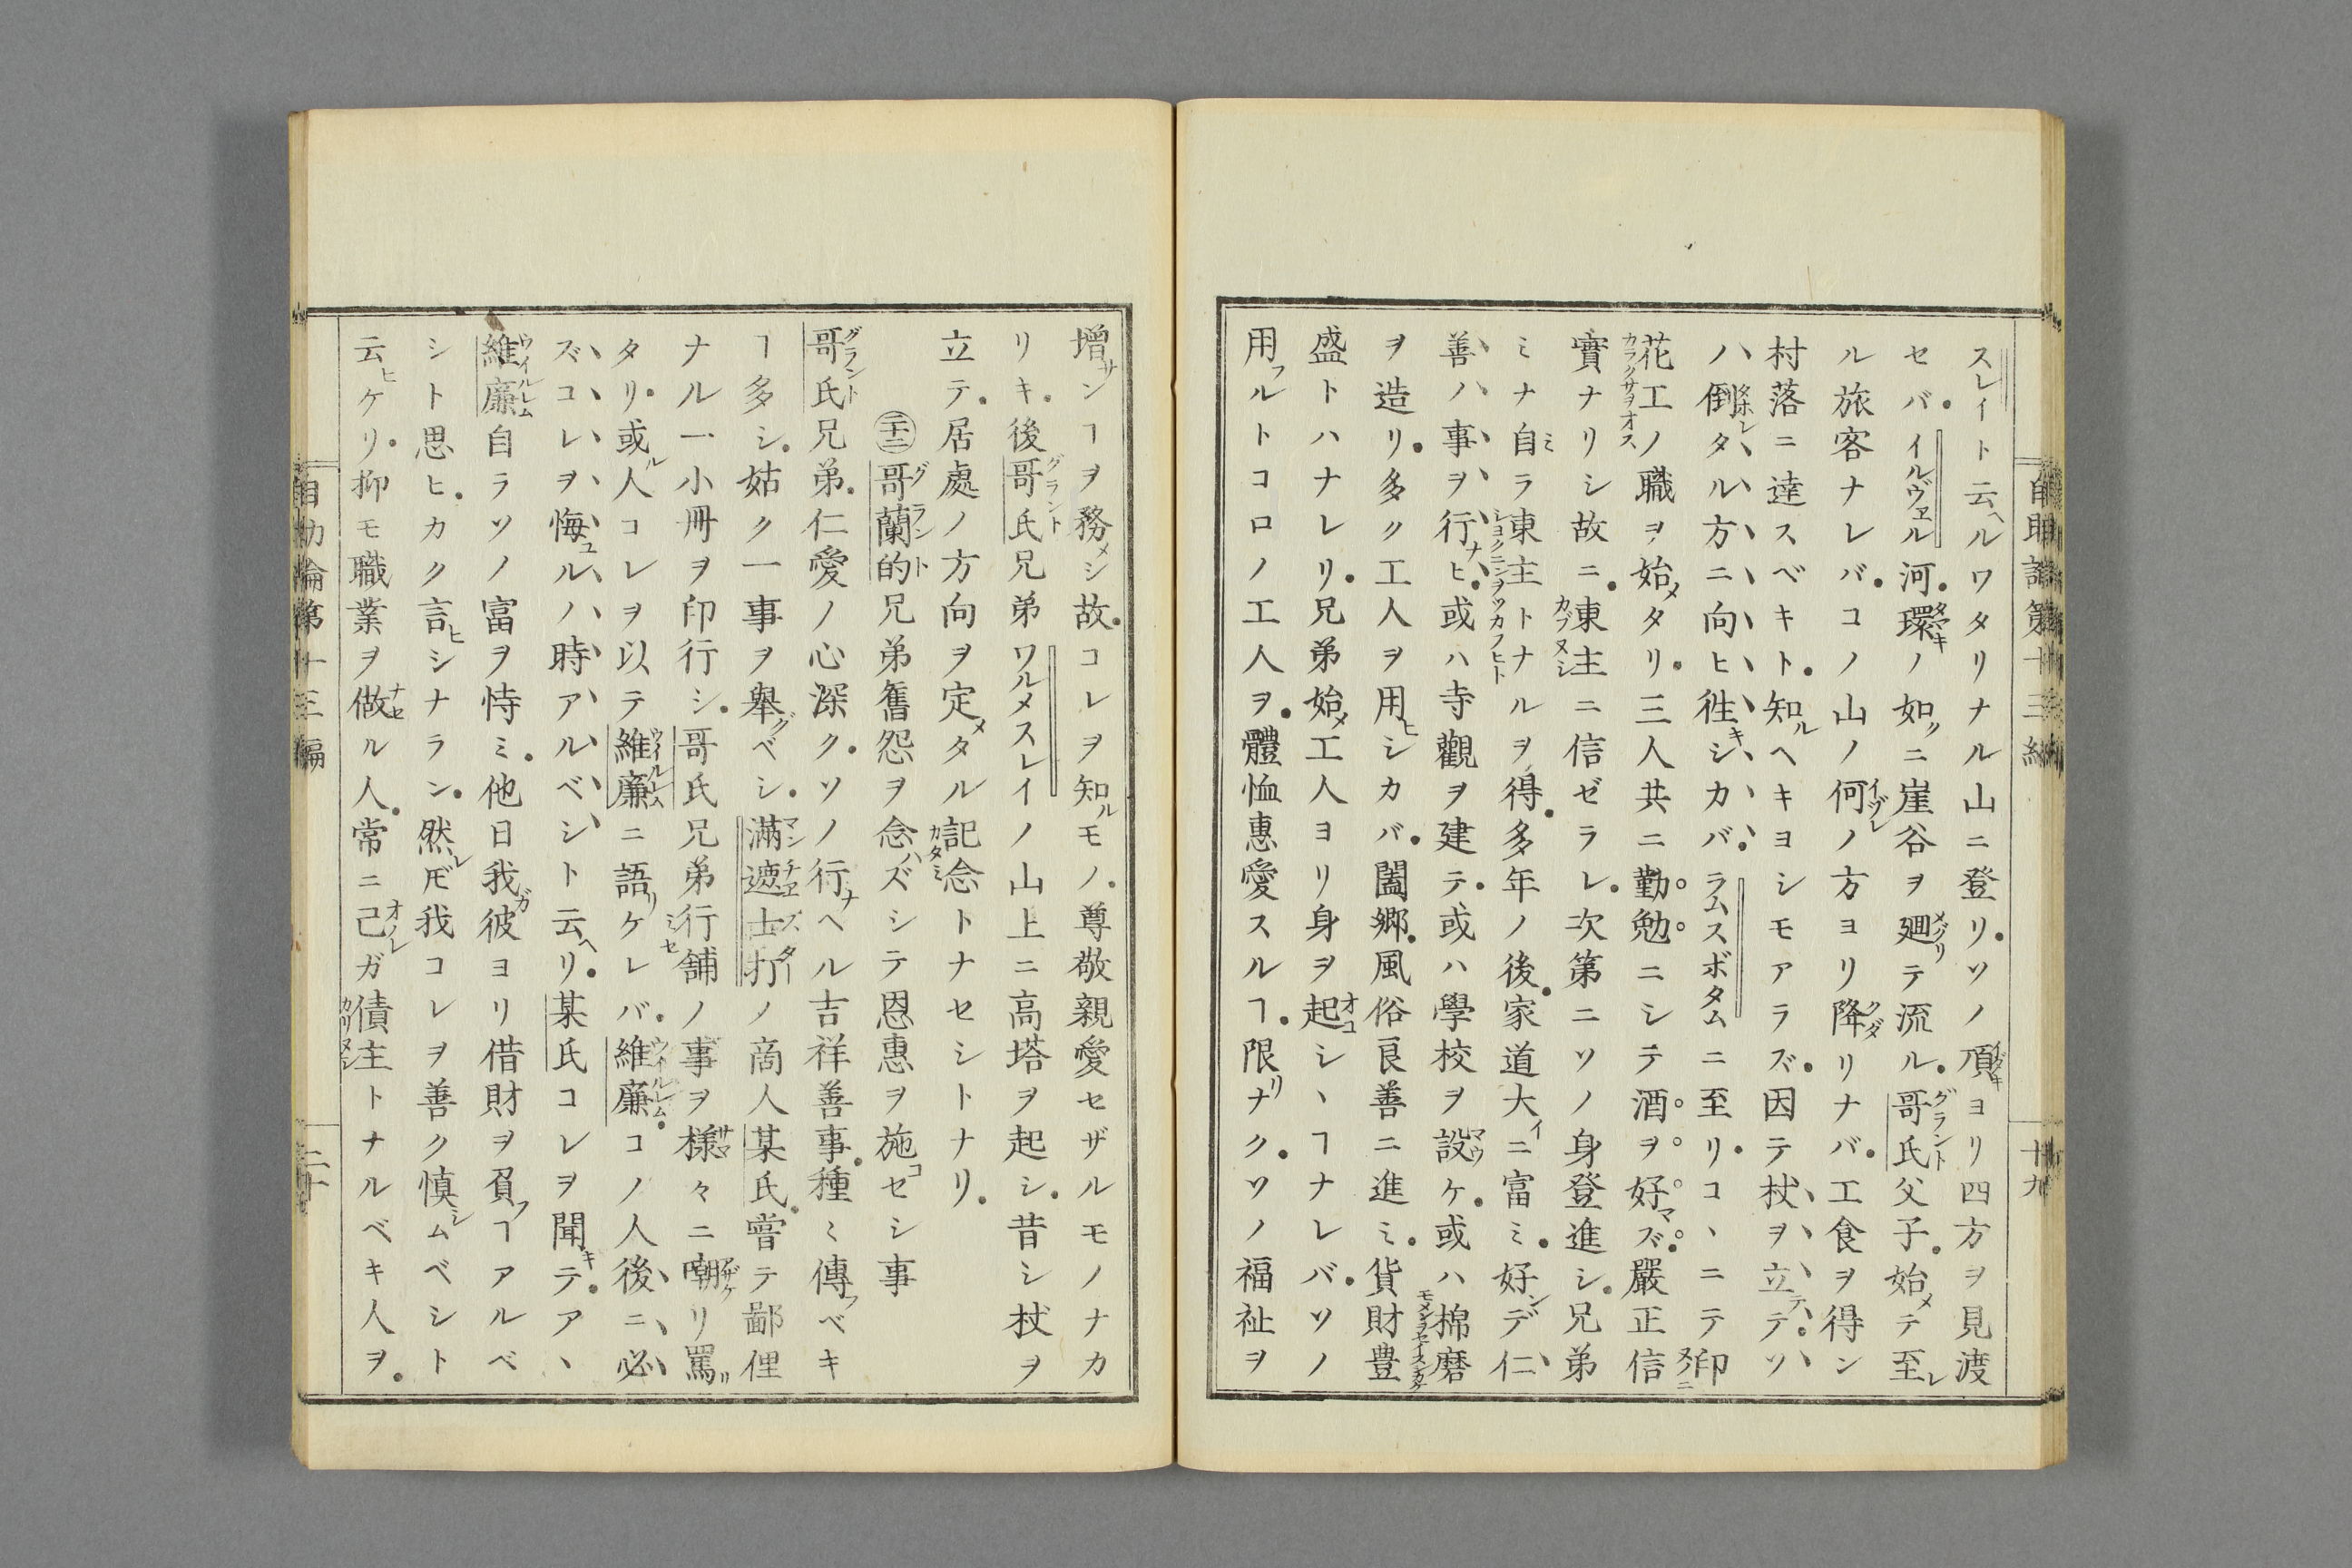 スレイト云ヘルワタリナル山ニ登リ。ソノ頂ヨリ四方ヲ見渡
セバ。イルヴェル河。環ノ如クニ崖谷ヲ廻テ流ル。哥氏父子。始メテ至レ
ル旅客ナレバ。コノ山ノ何ノ方ヨリ降リナバ。工食ヲ得ン
村落ニ達スベキト。知ルヘキヨシモアラズ。因テ杖ヲ立テ。ソ
ノ倒レタル方ニ向ヒ徃キシカバ。ラムスボタムニ至リ。コヽニテ印
花工ノ職ヲ始メタリ。三人共ニ勤勉ニシテ酒ヲ好マズ。嚴正信
實ナリシ故ニ。東主ニ信ゼラレ。次第ニソノ身登進シ。兄弟
ミナ自ミラ東主トナルヲ得。多年ノ後。家道大イニ富ミ。好ンデ仁
善ノ事ヲ行ナヒ。或ハ寺觀ヲ建テ。或ハ學校ヲ設ケ。或ハ棉磨
ヲ造リ。多ク工人ヲ用ヒシカバ。闔郷。風俗良善ニ進ミ。貨財豊
盛トハナレリ。兄弟始メ工人ヨリ身ヲ起シヽヿナレバ。ソノ
用フルトコロノ工人ヲ。體恤惠愛スルヿ。限リナク。ソノ福祉ヲ
自助論第十三編
十九
增サンヿヲ務メシ故。コレヲ知ルモノ。尊敬親愛セザルモノナカ
リキ。後哥氏兄弟ワルメスレイノ山上ニ高塔ヲ起シ。昔シ杖ヲ
立テ。居處ノ方向ヲ定メタル記念トナセシトナリ。
㊁十二 哥蘭的兄弟舊怨ヲ念ハズシテ恩惠ヲ施コセシ事
哥氏兄弟。仁愛ノ心深ク。ソノ行ナヘル吉祥善事。種ミ傳フベキ
ヿ多シ。姑ク一事ヲ舉グベシ。滿遮士打ノ商人某氏。嘗テ鄙俚
ナル一小冊ヲ印行シ。哥氏兄弟行舖ノ事ヲ樣々ニ嘲リ罵リ
タリ。或ル人コレヲ以テ維廉ニ語リケレバ。維廉。コノ人後ニ必
ズコレヲ悔ユルノ時アルベシト云ヘリ。某氏コレヲ聞キテ。アヽ
維廉自ラソノ富ヲ恃ミ。他日我ガ彼ヨリ借財ヲ負フヿアルベ
シト思ヒ。カク言ヒシナラン。然レ𪜈我コレヲ善ク慎シムベシト
云ヒケリ。抑モ職業ヲ做セル人。常ニ己ガ債主トナルベキ人ヲ。
自助論第十三編
二十